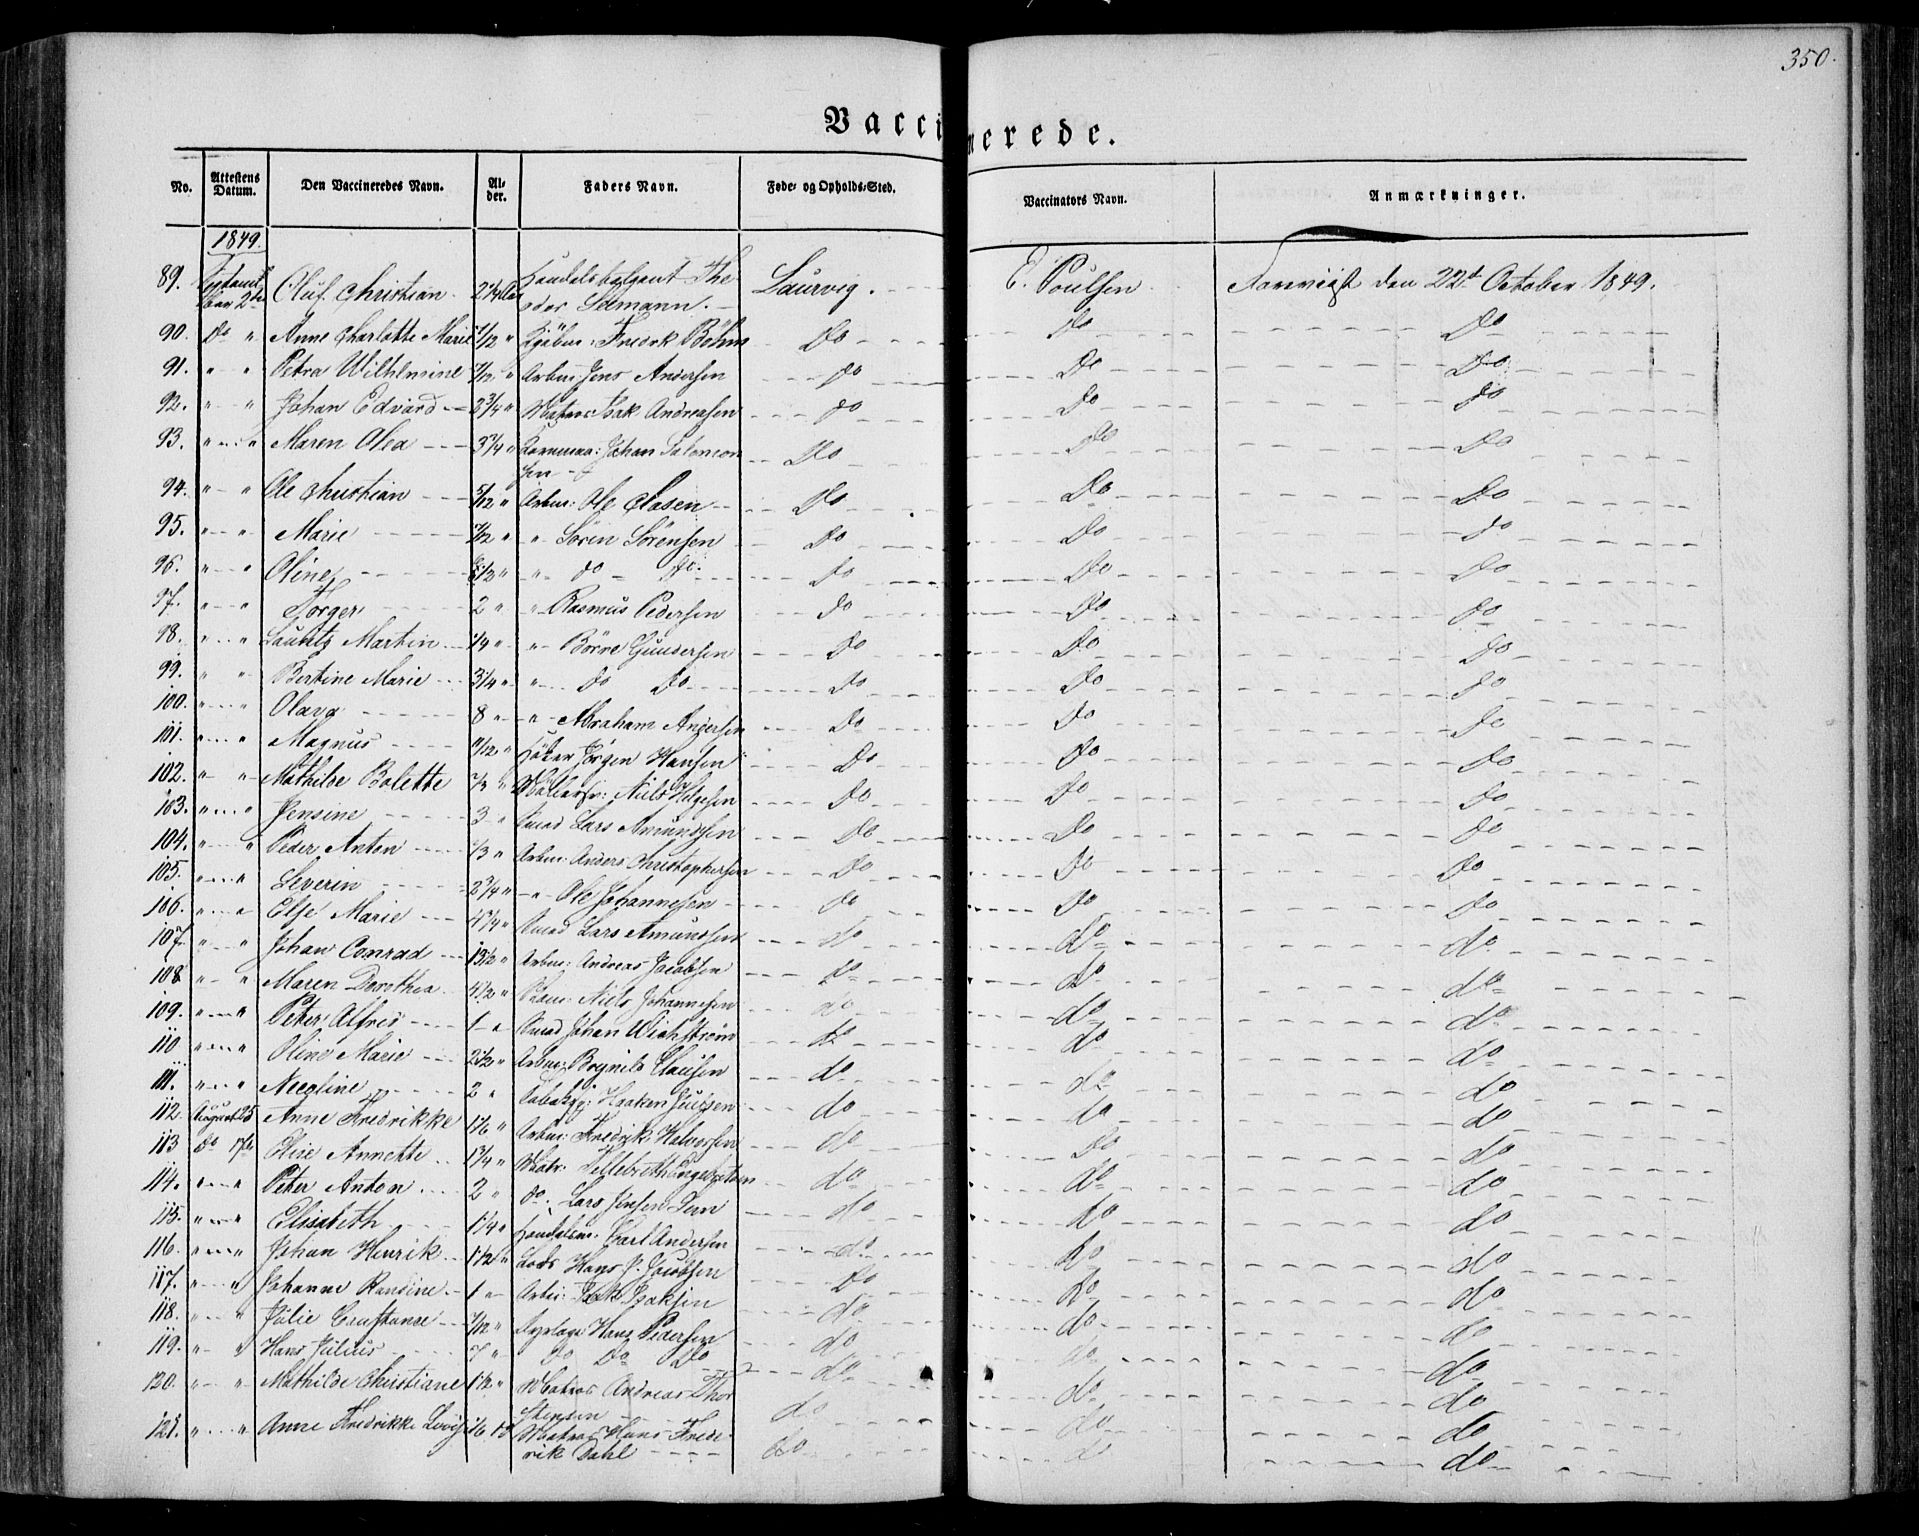 350.
Vaccinerede.
No. Attestens Datum. Den Vaccineredes Navn. Alder. Faders Navn. Føde- og Opholds-Sted. Vaccinators Navn. Anmærkninger.
1849.
89. Septem- Handelsbetjent The
ber 2de Oluf Christian. 2 1/4 Aar odor Seemann. Laurvig. E. Poulsen Foreviist den 22de October 1849.
90. Do " Anne Charlotte Marie 1/2 " Kjøbm: Fredrk Böhm Do Do Do
91. " " Petra Wilhelmine 7/12 " Arbm: Jens Andersen do Do Do
92. " " Johan Edvard 3 3/4 " Matros Isak Andreasen do Do do
93. " " Maren Olea 3 3/4 " Johan Salomon
sen Do Do Do
94. " " Ole Christian 5/12 " Arbm: Ole Olasen Do Do Do
95. " " Marie " " Sørin Sørensen Do Do do
96. " " Oline " " do do. Do Do Do
97. " " Torger 2 " " Rasmus Pedersen do Do do
98. " " Lauritz Martin 1/4 " " Børre Gundersen Do Do Do
99. " " Bertine Marie 3 1/4 " " Do Do Do Do do
100. " " Olava 8 " " Abraham Andersen Do Do do
101. " " Magnus " Høker Jørgen Hansen Do Do Do
102. " " Mathilde Bolette " Niels Helgesen Do Do Do
103. " " Jensine 3 " Smed Lars Amundsen Do Do Do
104. " " Peder Anton 1/3 " Arbm: Anders Christophersen Do Do Do
105. " " Severin 2 3/4 " " Ole Johannesen do Do Do
106. " " Else Marie 4 3/4 " Smed Lars Amundsen do Do do
107. " " Johan Conrad 13 1/2 " Arbm: Andreas Jacobsen do do do
108. " " Maren Dorothea 4 1/2 " Niels Johannesen do do do
109. " " Peter Alfred 1 " Smed Johan Wichstrøm do do do
110 " " Oline Marie 2 1/2 " Arbm: Clausen do do do
111. " " Nicoline 2 " Haaken Juelsen do do do
112. August 25 Anne Fredrikke 1 1/6 " Arbm: Fredrik Halvorsen do do do
113 Do 17de Elise Annette 1 3/4 " Matr: Tellef Engebretsen do do do
114. " " Peter Anton 2 " do. Lars Jensen do do do
115. " " Elisabeth 1 1/4 " Handelsm: Carl Andersen do do do
116. " " Johan Henrik 1 1/2 " Lods Hans J. Jacobsen do do do
117. " " Johanne Ransine 1 " Arbm: Isak Isaksen do do do
118. " " Julie Constance 7/12 " Hans Pedersen do do do
119. " " Hans Julius 7 " Do Do Do do do do
120. " " Mathilde Christiane 1 1/2 " Matros Andreas Thor
stensen do do do
121. " " Anne Fredrikke Lovise 1/6 Do Matros Hans Frede-
rik Dahl do do do